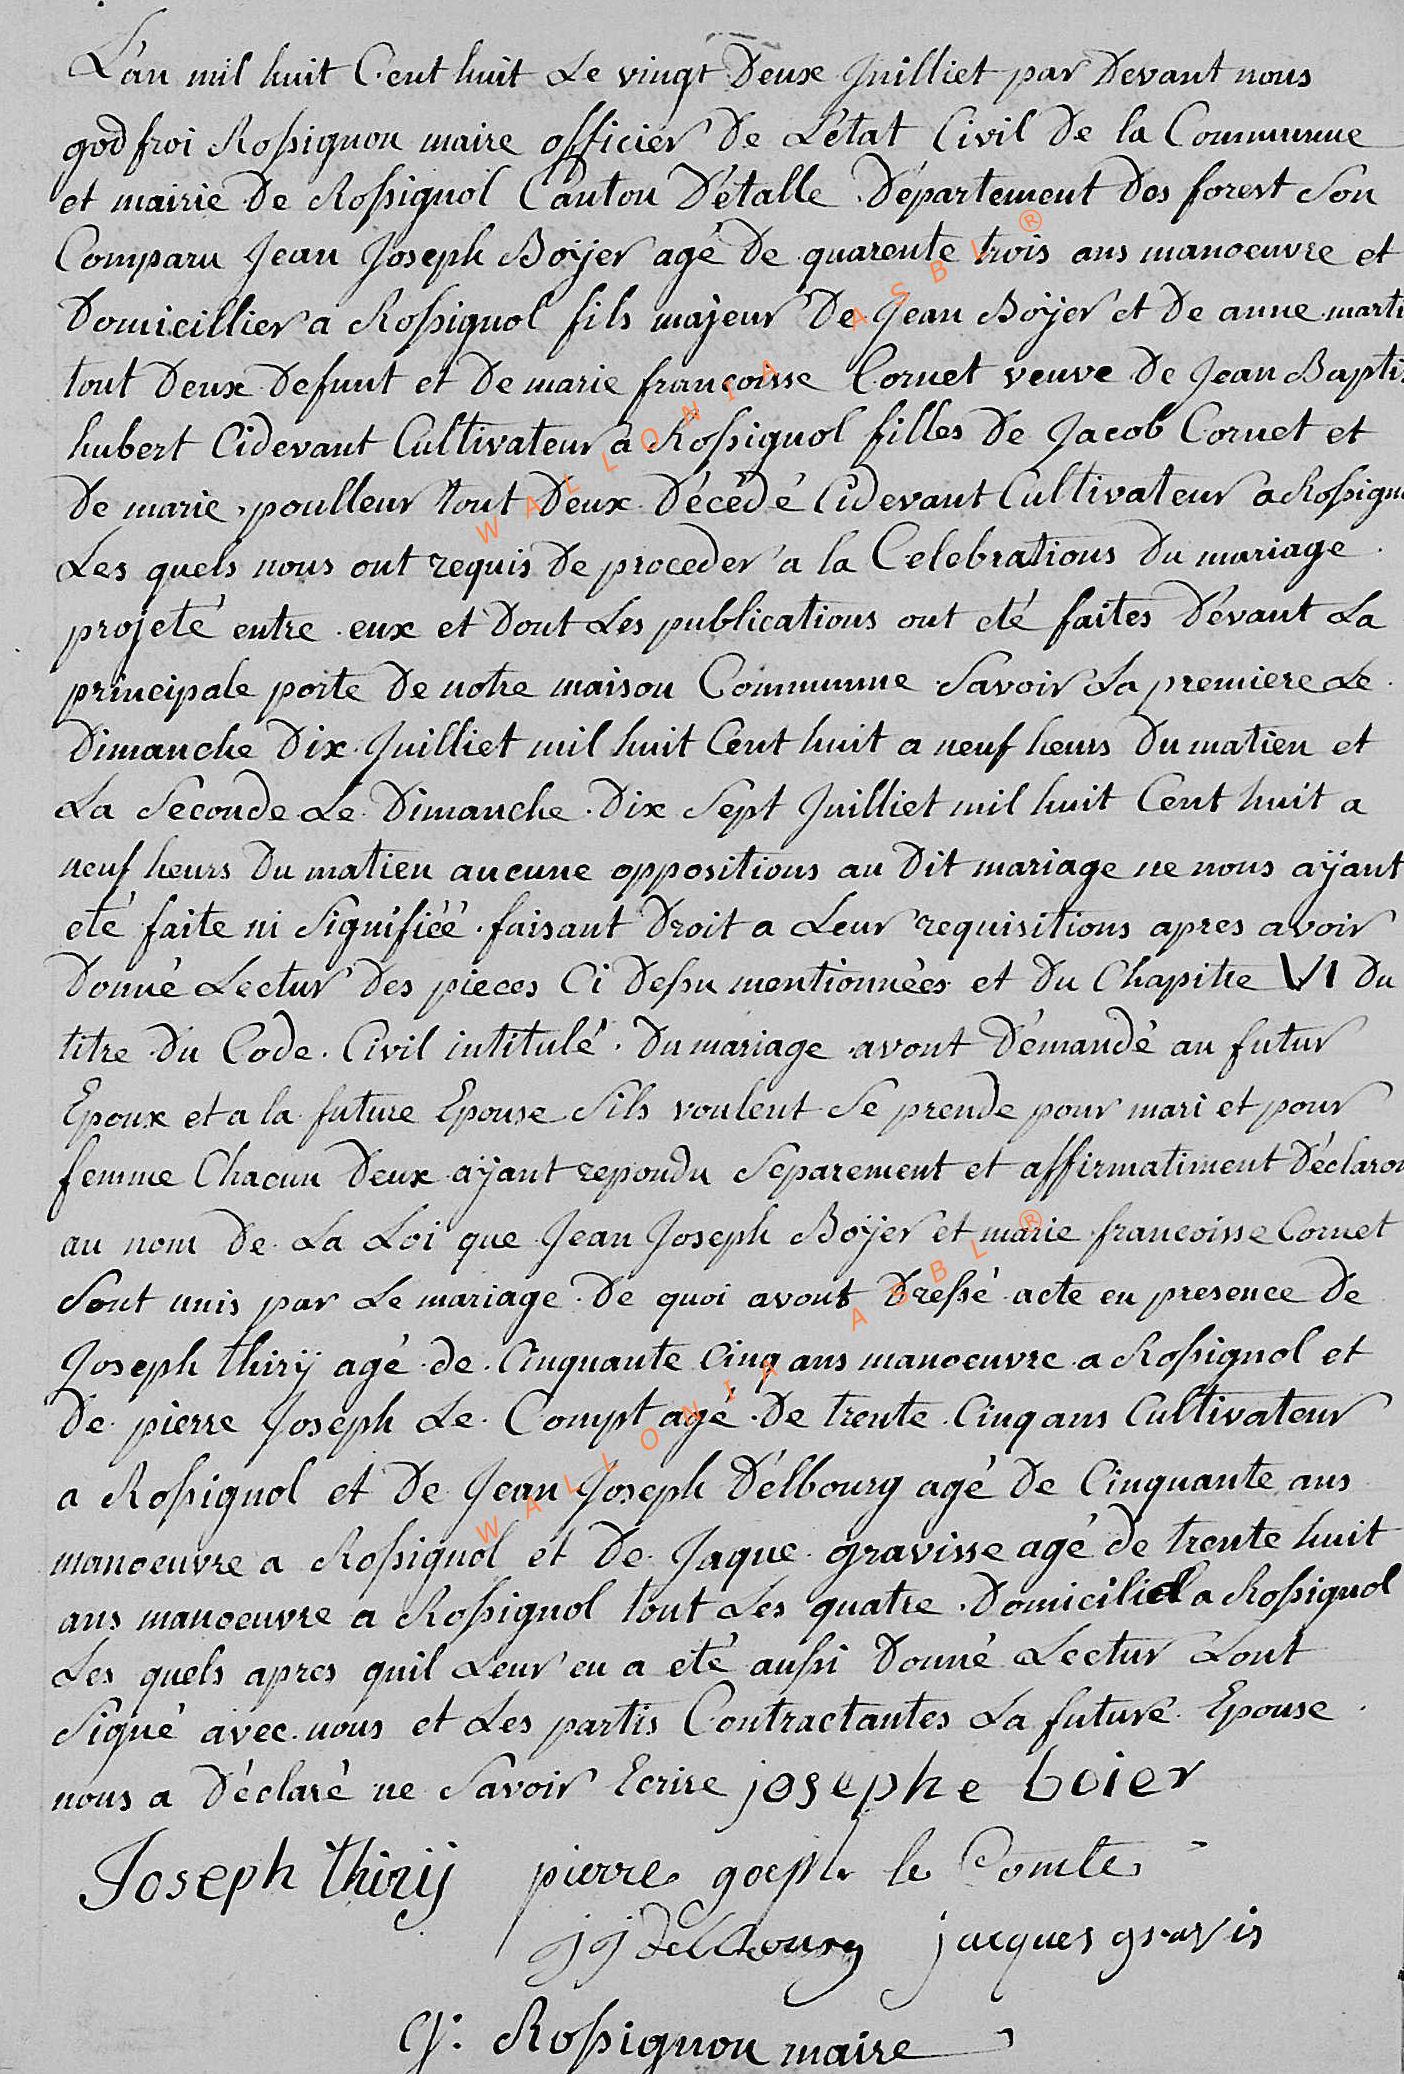 L'an mil huit Cent huit Le vingt Deux Juilliet par Devant nous
godfroi Rossignon maire officier De L'état Civil De la Commune
et mairie De Rossignol Canton D'étalle Département Des forest Son
Comparu Jean Joseph Boÿer agé De quarente trois ans manoeuvre et
Domicillier a Rossignol fils majeur De Jean Boÿer et De anne marti
tout Deux Defunt et De marie francoisse Cornet veuve De Jean Baptis
hubert Cidevant Cultivateur a Rossignol filles De Jacob Cornet et
De marie poulleur tout Deux Décédé Cidevant Cultivateur a Rossigno
Les quels nous ont requis De proceder a la Celebrations Du mariage
projeté entre eux et Dont Les publications ont eté faites Dévant La
principale porte De notre maison Commune Savoir La premiere Le
Dimanche Dix Juilliet mil huit Cent huit a neuf heurs Du matien et
La Seconde Le Dimanche Dix Sept Juilliet mil huit Cent huit a
neuf heurs Du matien aucune oppositions au Dit mariage ne nous aÿant
eté faite ni Signifiéé faisant Droit a Leur requisitions apres avoir
Donné Lectur Des pieces Ci Dessu mentionnées et Du Chapitre VI Du
titre Du Code Civil intitulé Du mariage avont Démandé au futur
Epoux et a la future Epouse Sils voulent Se prende pour mari et pour
femme Chacun Deux aÿant repondu Separement et affirmatiment Déclaron
au nom De La Loi que Jean Joseph Boÿer et marie francoisse Cornet
Sont unis par Le mariage De quoi avons Dressé acte en presence De
Joseph thirÿ agé de Cinquante Cinq ans manoeuvre a Rossignol et
De pierre Joseph Le Compt agé De trente Cinq ans Cultivateur
a Rossignol et De Jean Joseph Délbourg agé De Cinquante ans
manoeuvre a Rossignol et De Jaque gravisse agé de trente huit
ans manoeuvre a Rossignol tout Les quatre Domicilié a Rossignol
Les quels apres quil Leur en a eté aussi Donné Lectur Lont
Signé avec nous et Les partis Contractantes La future Epouse
nous a Déclaré ne Savoir Ecrire josephe boier
Joseph thirÿ pierre goseph le Comte
jj delbourg jacques gravis
G: Rossignon maire
WALLONIA ASBL ®
WALLONIA ASBL ®